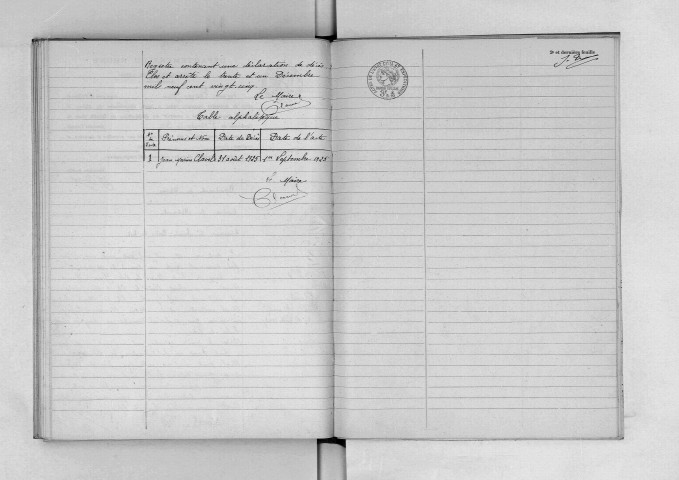 Registre contenant une déclaration de décès
Clos et arrêté le trente et un Décembre
mil neuf cent vingt cinq
Le Maire
Table alphabétique
Prénoms et Nom Date du Décès Date de l'acte
1 Jean 31 août 1925 1er Septembre 1925
Le Maire
2e et dernière feuille